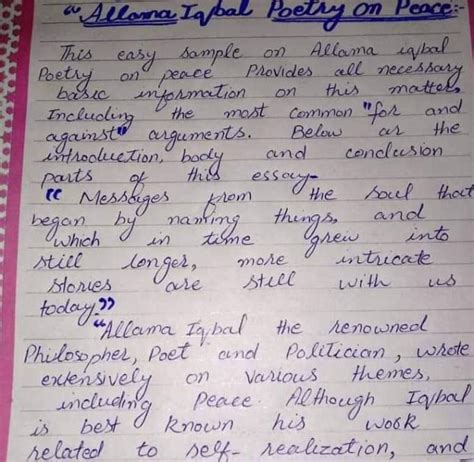 " Allama Iqbal Poetry on Peace:-
This easy sample on Allama iqbal
Poetry on peace Provides all necessary
basic information on this matter,
Including the most common "for and
against" arguments. Below ar the
introduction, body and conclusion
parts of this essay-
" Messages from the soul that
began by naming things, and
which in time grew into
still longer, more intricate
stories are still with us
today."
"Allama Iqbal the renowned
Philosopher, Poet and Politician, wrote
extensively on various themes,
including Peace. Although Iqbal
is best known his work
related to self-realization, and